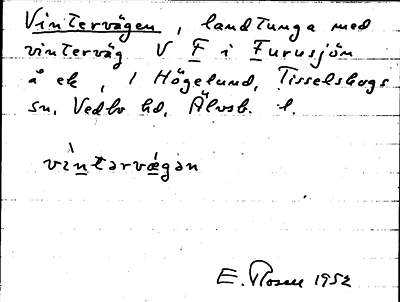 Vintervägen, landtunga med
vinterväg V F i Furusjön
å ek, 1 Högelund, Tisselskogs
sn, Vedbo hd, Älvsb. l.
vìntərvǽgən
E. Rosell 1952